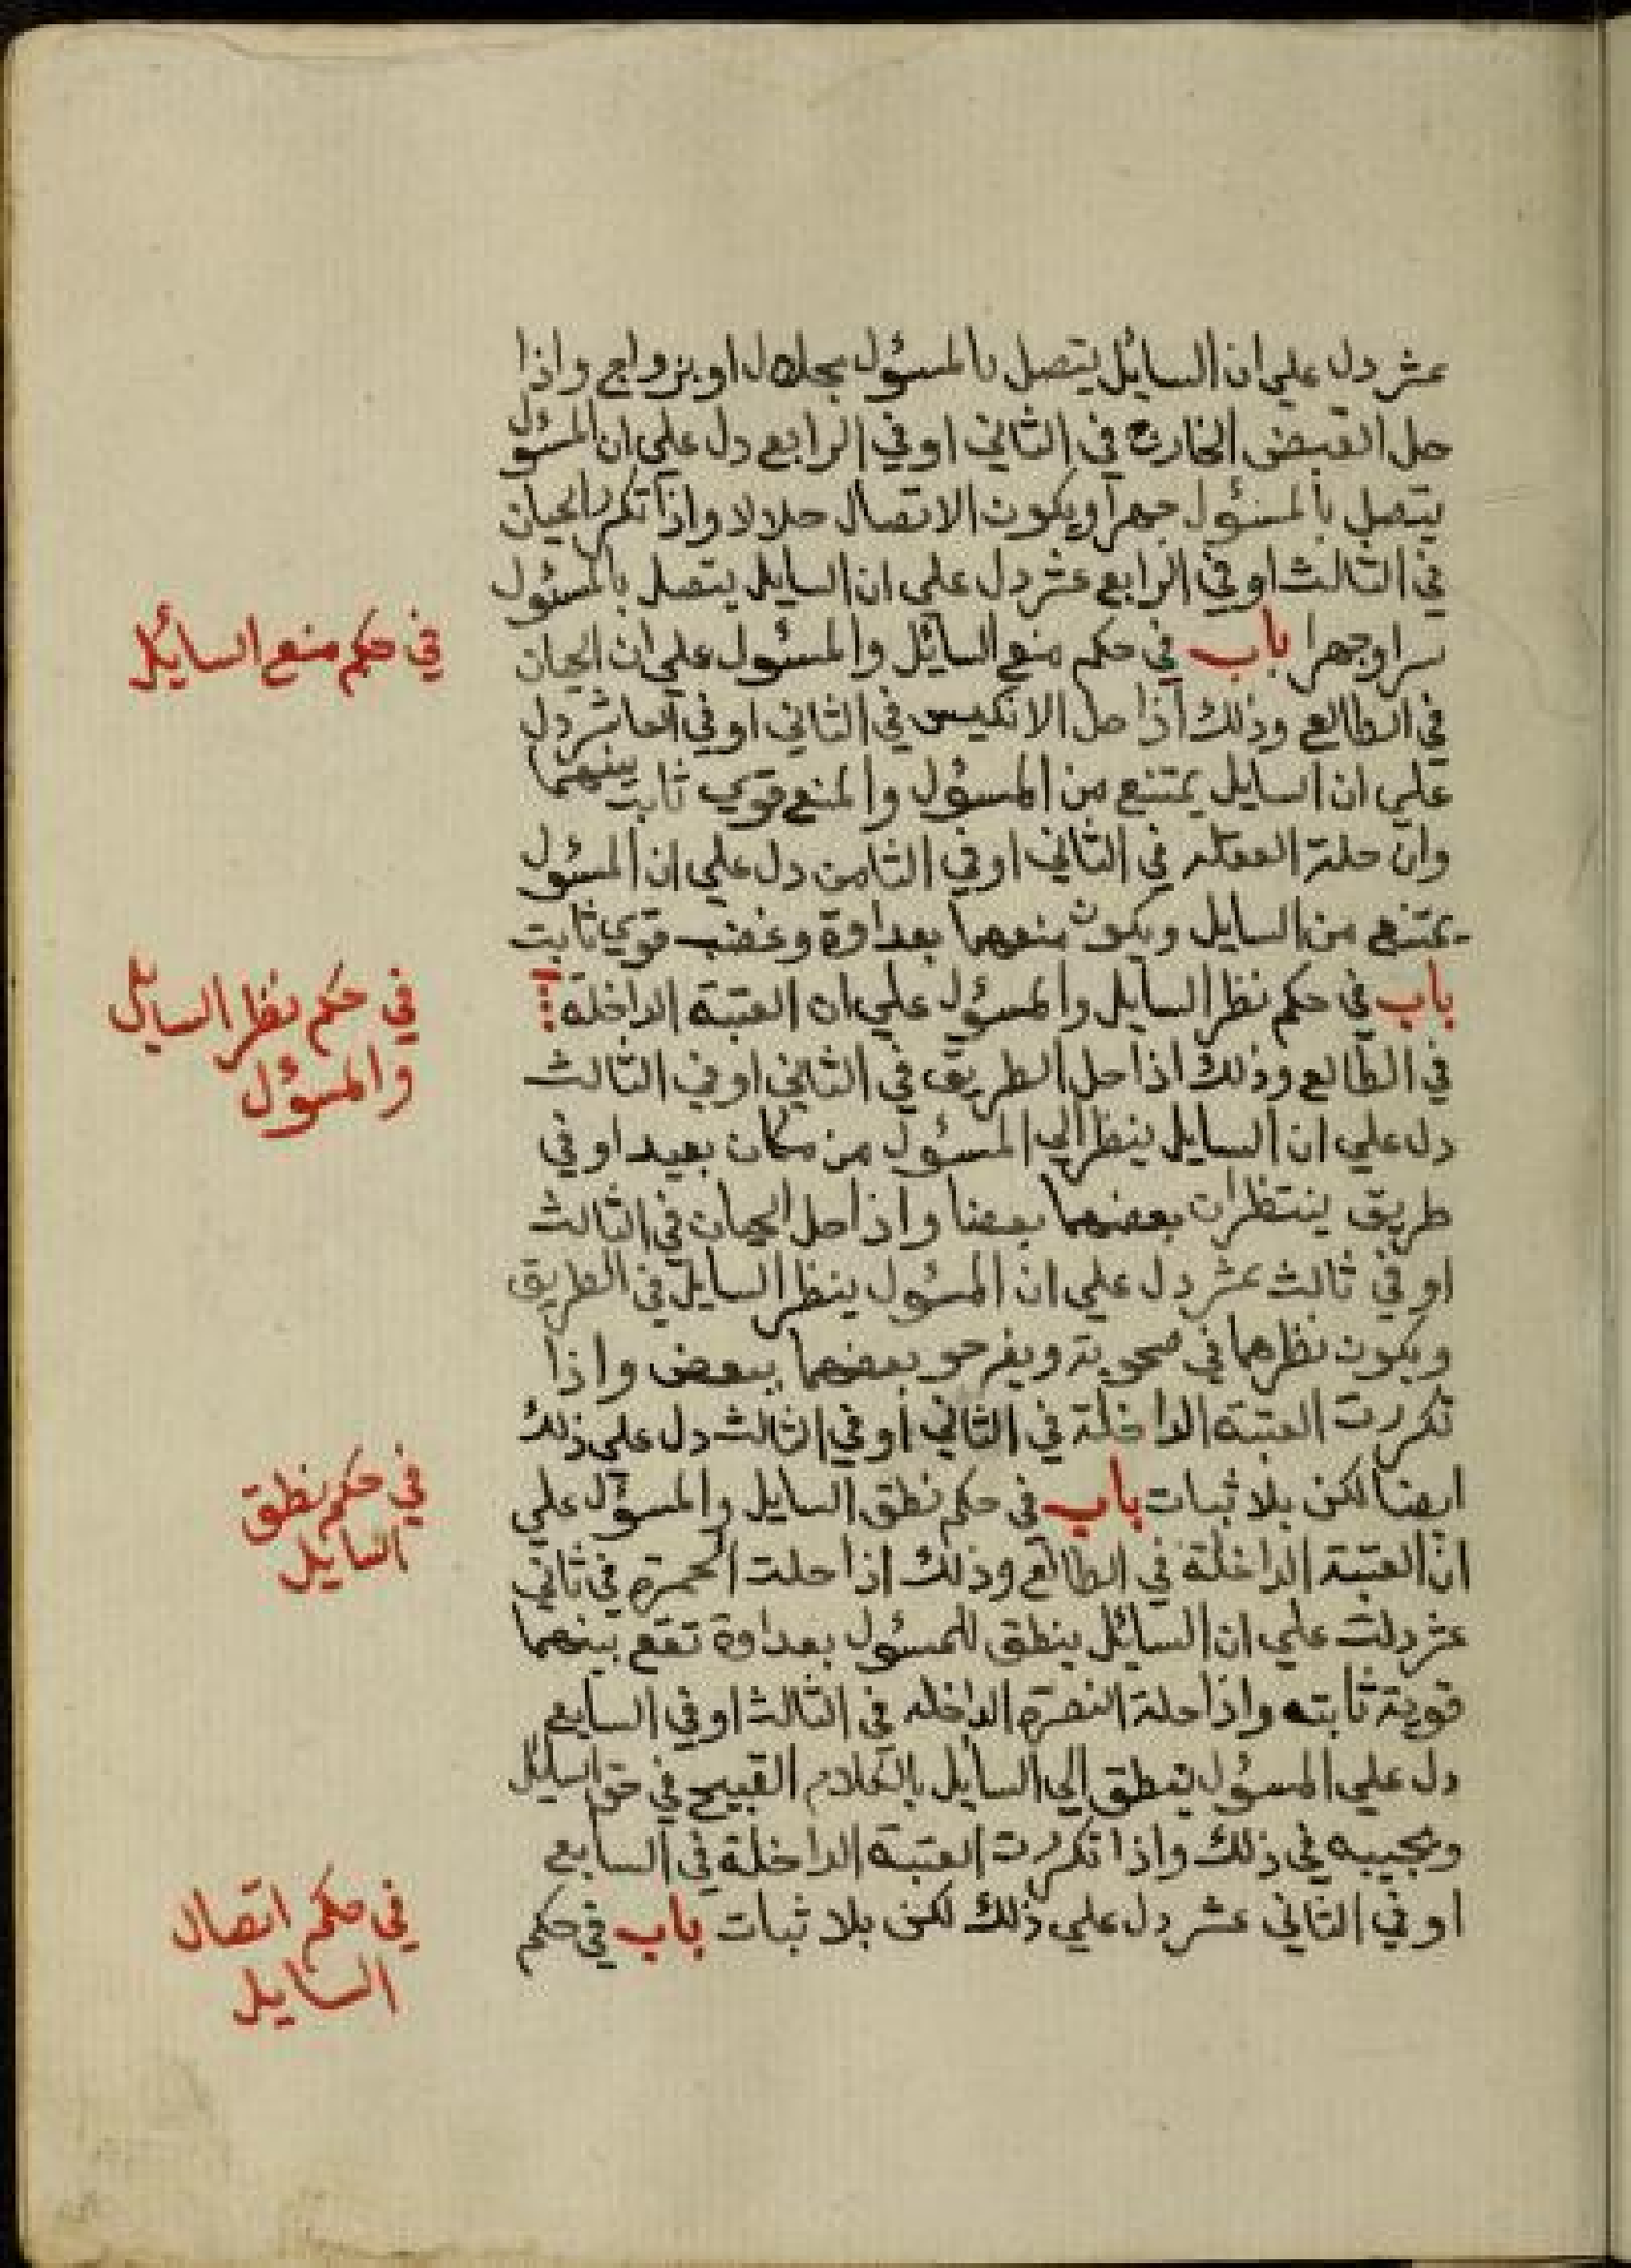 عشر دل علي ان السايل يتصل بالمسؤل بحلال او بزواج واذا
حل القبض الخارج في الثاني او في الرابع دل علي ان المسؤل
يتصل بالمسؤل جهرا ويكون الاتصال حلالا واذا تكرر الحيان
في الثالث او في الرابع عشر دل علي ان السايل يتصل بالمسئول
سرا وجهرا باب في حكم منع السائل والمسئول علي ان الحيان
في حكم منع السايل
في الطالع وذلك اذا حل الانكيس في الثاني او في العاشر دل
علي ان السايل يمتنع من المسؤل والمنع قوي ثابت بينهما
وان حلة العقله في الثاني او في الثامن دل علي ان المسؤل
يمتنع من السايل ويكون منعهما بعداوة وغضب قوي ثابت
باب في حكم نظر السايل والمسؤل علي ان العتبة الداخلة
في حكم نظر السايل
والمسؤل
في الطالع وذلك اذا حل الطريق في الثاني او في الثالث
دل علي ان السايل ينظر الي المسؤل من مكان بعيد او في
طريق ينتظران بعضهما بعضا واذا حل الحيان في الثالث
او في ثالث عشر دل علي ان المسؤل ينظر السايل في الطريق
ويكون نظرهما في صحوبة ويفرحو بعضهما ببعض واذا
تكررت العتبة الداخلة في الثاني او في الثالث دل علي ذلك
ايضا لكن بلا ثبات باب في حكم نطق السايل والمسؤل علي
في حكم نطق
السايل
ان العتبة الداخلة في الطالع وذلك اذا حلت الحمرة في ثاني
عشر دلت علي ان السائل ينطق للمسئول بعداوة تقع بينهما
قوية ثابته واذا حلة النصرة الداخله في الثالث او في السابع
دل علي المسؤل ينطق الي السايل بالكلام القبيح في حق السايل
ويجيبه في ذلك واذا تكررت العتبة الداخلة في السابع
او في الثاني عشر دل علي ذلك لكن بلا ثبات باب في حكم
في حكم اتصال
السايل